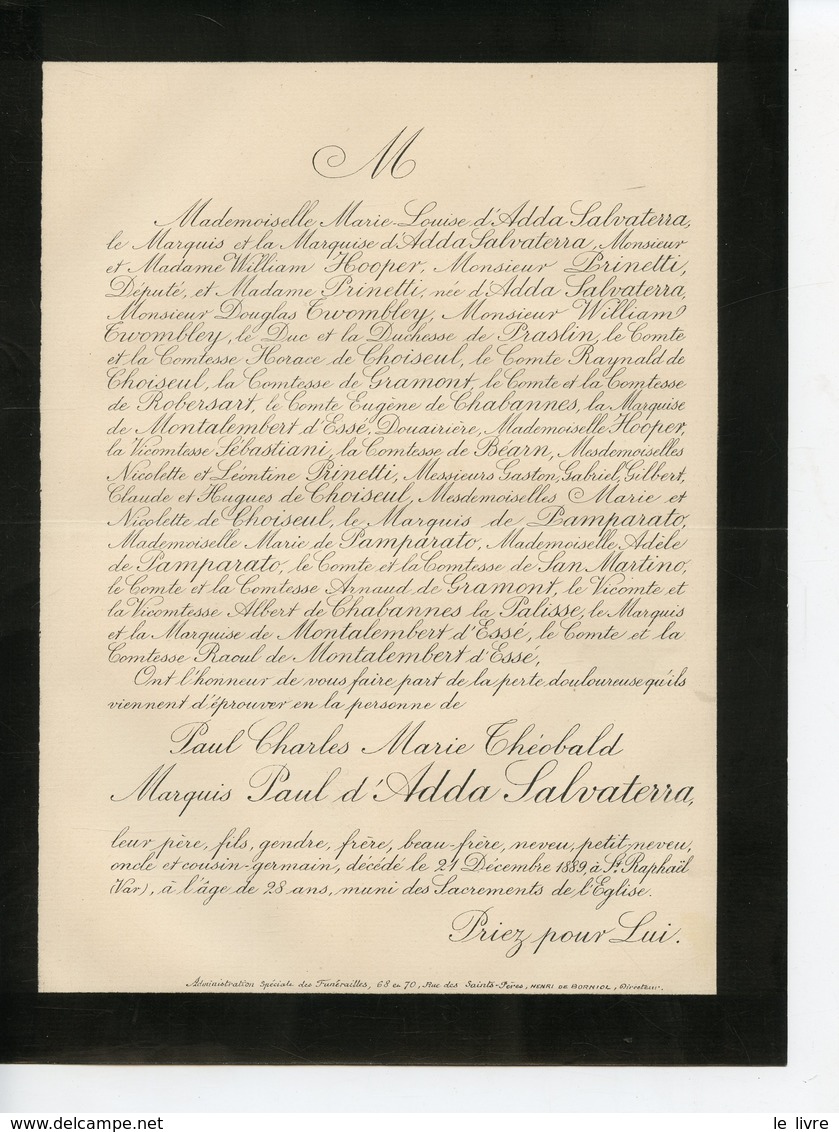 M
Mademoiselle Marie-Louise d'Adda Salvaterra,
le Marquis et la Marquise d'Adda Salvaterra, Monsieur
et Madame William Hooper, Monsieur Prinetti,
Député, et Madame Prinetti, née d'Adda Salvaterra,
Monsieur Douglas Twombley, Monsieur William
Twombley, le Duc et la Duchesse de Praslin, le Comte
et la Comtesse Horace de Choiseul, le Comte Raynald de
Choiseul, la Comtesse de Gramont, le Comte et la Comtesse
de Robersart, le Comte Eugène de Chabannes, la Marquise
de Montalembert d'Essé, Douairière, Mademoiselle Hooper,
la Vicomtesse Sébastiani, la Comtesse de Béarn, Mesdemoiselles
Nicolette et Léontine Prinetti, Messieurs Gaston, Gabriel, Gilbert,
Claude et Hugues de Choiseul, Mesdemoiselles Marie et
Nicolette de Choiseul, le Marquis de Pamparato,
Mademoiselle Marie de Pamparato, Mademoiselle Adèle
de Pamparato, le Comte et la Comtesse de San Martino,
le Comte et la Comtesse Arnaud de Gramont, le Vicomte et
la Vicomtesse Albert de Chabannes la Palisse, le Marquis
et la Marquise de Montalembert d'Essé, le Comte et la
Comtesse Raoul de Montalembert d'Essé,
Ont l'honneur de vous faire part de la perte douloureuse qu'ils
viennent d'éprouver en la personne de
Paul Charles Marie Théobald
Marquis Paul d'Adda Salvaterra,
leur père, fils, gendre, frère, beau-frère, neveu, petit-neveu,
oncle et cousin-germain, décédé le 21 Décembre 1889, à St. Raphaël
(Var), à l'âge de 28 ans, muni des Sacrements de l'Eglise.
Priez pour Lui.
Administration Spéciale des Funérailles, 68 et 70, Rue des Saints-Pères, HENRI DE BORNIOL, Directeur.
le livre